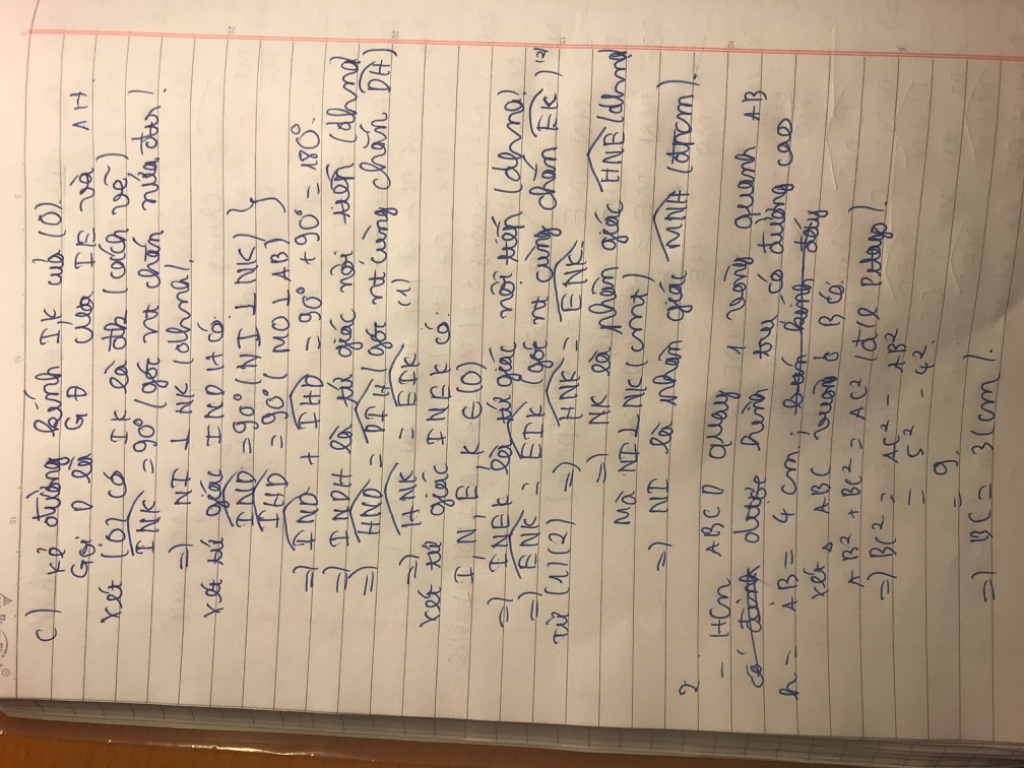 c) Kẻ đường kính IK của (O).
Gọi D là GĐ của IE và AH
Xét (O) có IK là đk (cách vẽ)
INK = 90° (góc nt chắn nửa đtr)
=) NI ⊥ NK (đhnd)
Xét tứ giác INDH có
IND = 90° (NI ⊥ NK) }
IHD = 90° (MO ⊥ AB) }
=) IND + IHD = 90° + 90° = 180°.
=) INDH là tứ giác nội tiếp (dhnb)
=) HND = DIH (góc nt cùng chắn DH)
=) HNK = EIK (1)
Xét tứ giác INEK có:
I, N, E, K ∈ (O)
=) INEK là tứ giác nội tiếp (dhnb)
=) ENK = EIK (góc nt cùng chắn EK) (2)
Từ (1)(2) =) HNK = ENK
=) NK là phân giác HNE (dhnb)
Mà NI ⊥ NK (cmt)
=) NI là phân giác MNH (đpcm).
2
- HCN ABCD quay 1 vòng quanh AB
có định được hình trụ có đường cao
h = AB = 4 cm, bán kính đáy
Xét Δ ABC vuông ở B có
AB² + BC² = AC² (đ/l Pitago)
=) BC² = AC² - AB²
= 5² - 4².
= 9
=) BC = 3(cm).